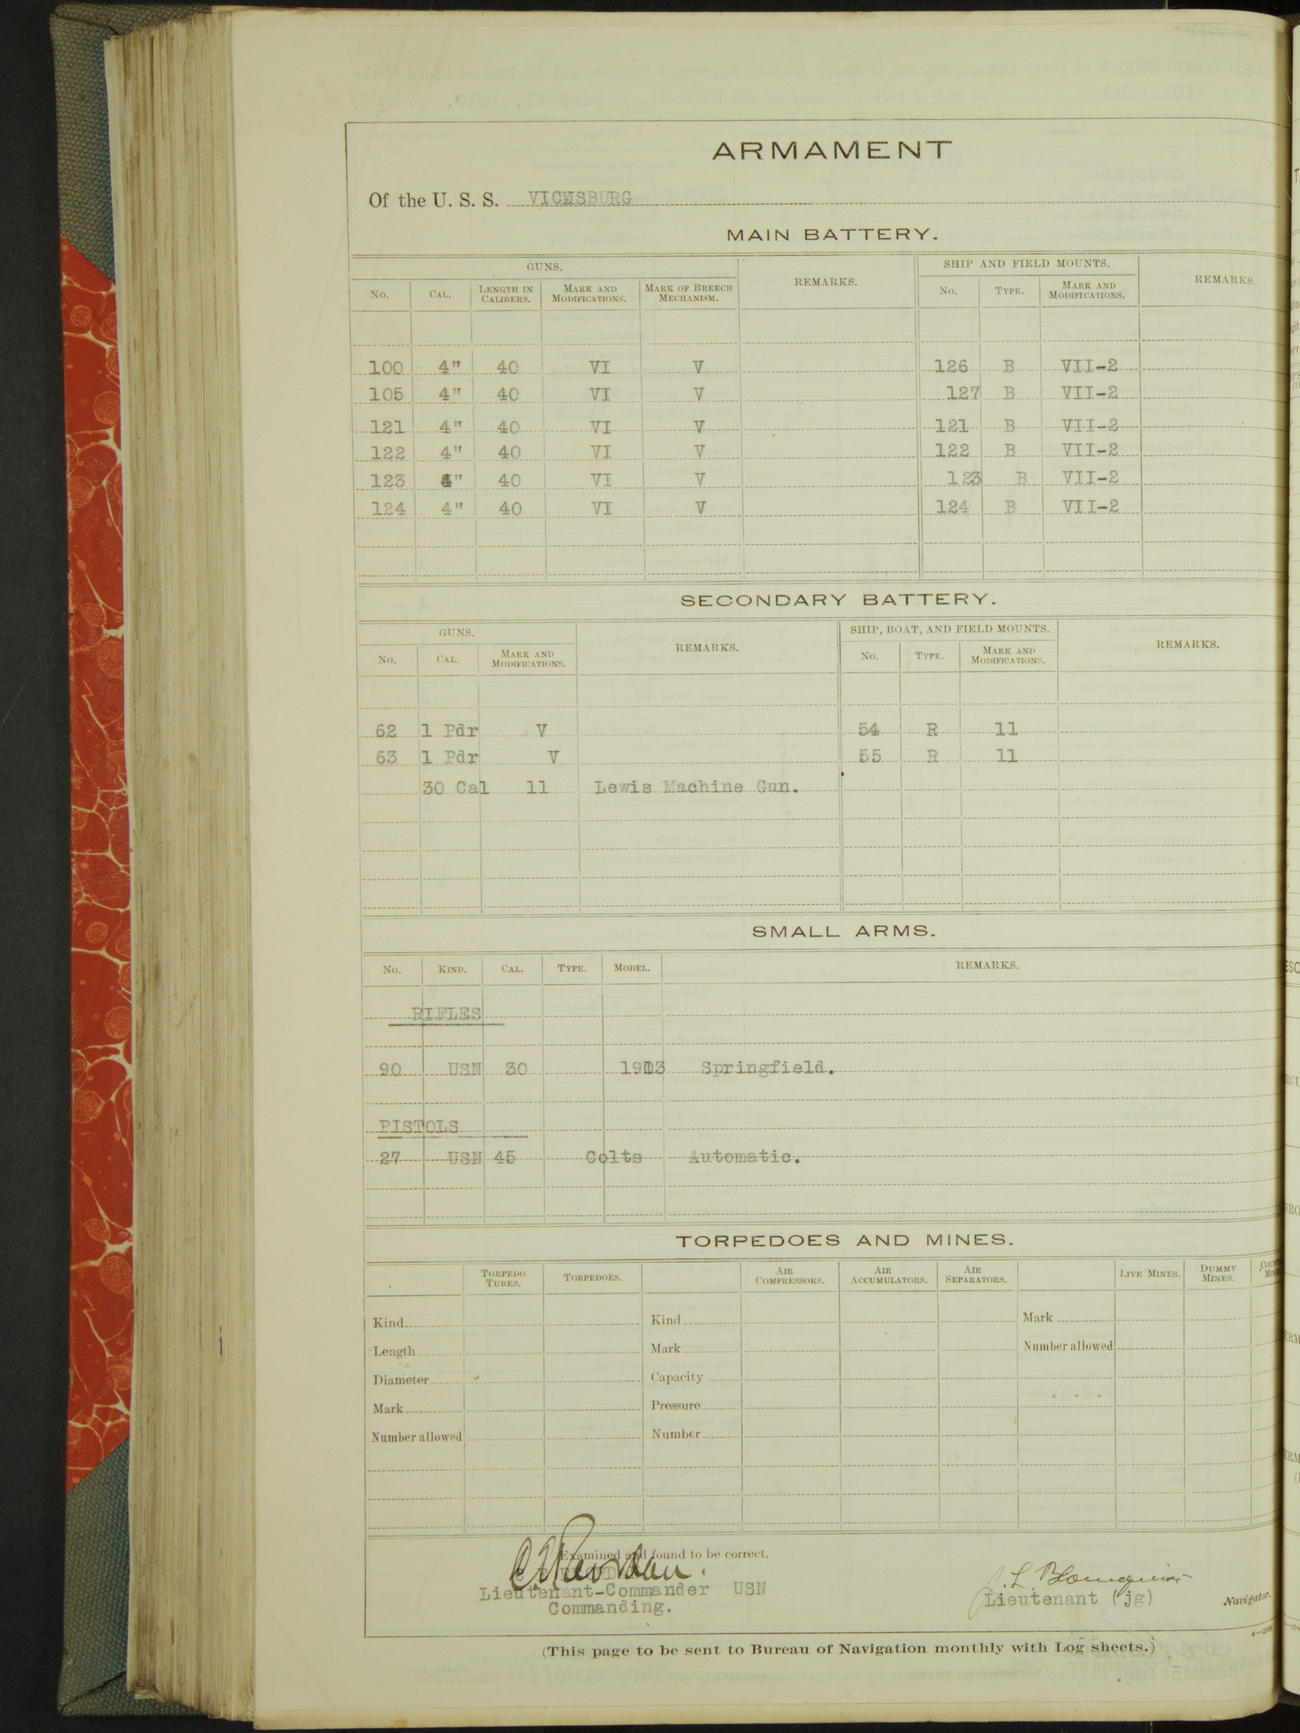 ARMAMENT
Of the U. S. S. VICKSBURG
MAIN BATTERY.
GUNS. REMARKS. SHIP AND FIELD MOUNTS. REMARKS.
No. CAL. LENGTH IN CALIBERS. MARK AND MODIFICATIONS. MARK OF BREECH MECHANISM. No. TYPE. MARK AND MODIFICATIONS.
100 4" 40 VI V 126 B VII-2
105 4" 40 VI V 127 B VII-2
121 4" 40 VI V 121 B VII-2
122 4" 40 VI V 122 B VII-2
123 4" 40 VI V 123 B VII-2
124 4" 40 VI V 124 B VII-2
SECONDARY BATTERY.
GUNS. REMARKS. SHIP, BOAT, AND FIELD MOUNTS. REMARKS.
No. CAL. MARK AND MODIFICATIONS. No. TYPE. MARK AND MODIFICATIONS.
62 1 Pdr V 54 R 11
63 1 Pdr V 55 R 11
30 Cal 11 Lewis Machine Gun.
SMALL ARMS.
No. KIND. CAL. TYPE. MODEL. REMARKS.
RIFLES
90 USN 30 1903 Springfield.
PISTOLS
27 USN 45 Colts Automatic.
TORPEDOES AND MINES.
TORPEDO TUBES. TORPEDOES. AIR COMPRESSORS. AIR ACCUMULATORS. AIR SEPARATORS. LIVE MINES. DUMMY MINES.
Kind Kind Mark
Length Mark Number allowed
Diameter Capacity
Mark Pressure
Number allowed Number
Examined and found to be correct.
Lieutenant-Commander USN
Commanding.
J. L. Blomquist
Lieutenant (jg) Navigator.
(This page to be sent to Bureau of Navigation monthly with Log sheets.)